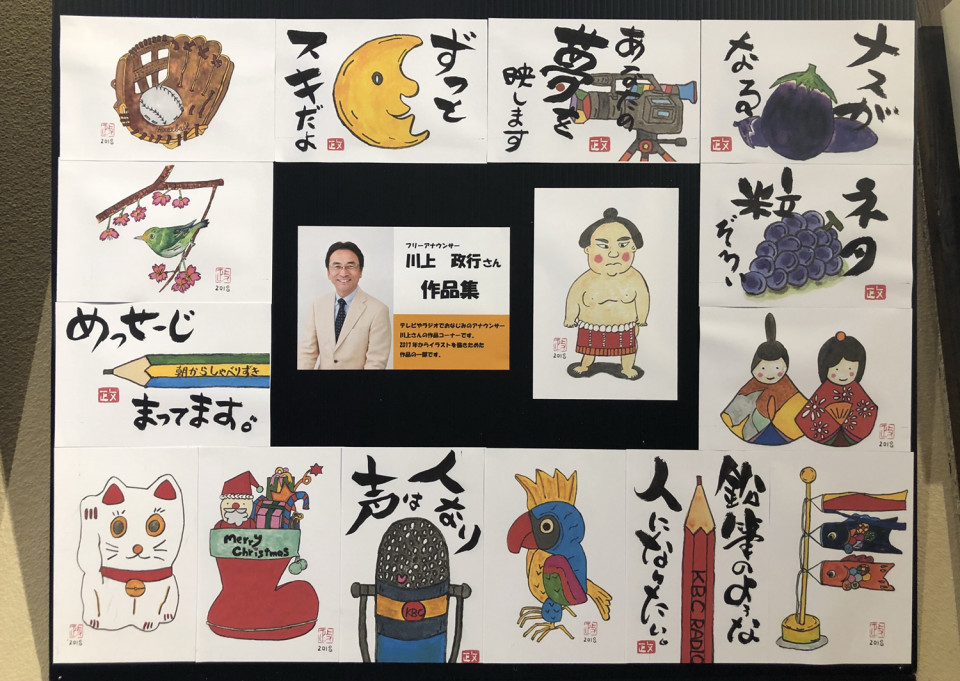 2018
ずっと
スキだよ
あなたの
夢を
映します
政
ナスが
なる
政
2018
フリーアナウンサー
川上 政行さん
作品集
テレビやラジオでおなじみのアナウンサー
川上さんの作品コーナーです。
2017年からイラストを描きためた
作品の一部です。
2018
ネタ
粒
ぞろい
政
めっせーじ
朝からしゃべりずき
政
まってます。
2018
2018
Merry
Christmas
2018
声は
人なり
KBC
政
2018
鉛筆のような
人になりたい。
KBC RADIO
政
2018